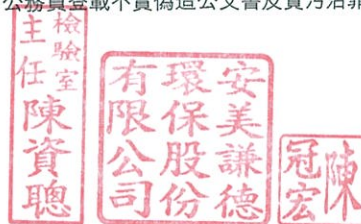 公務員登載不實偽造公文書及貪污治罪
檢驗室
主任
陳資聰
安美謙德
環保股份
有限公司
陳
冠宏